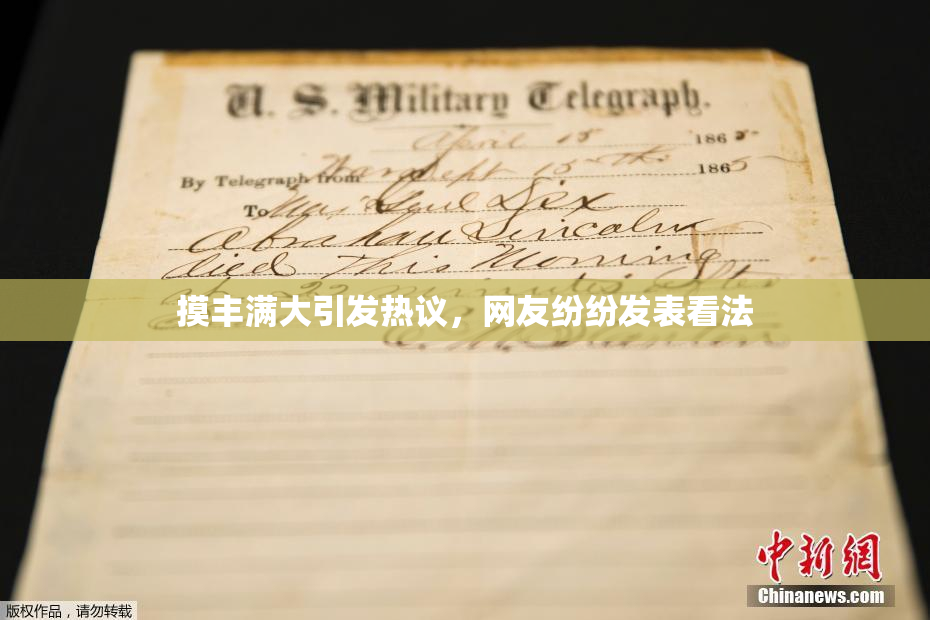 U. S. Military Telegraph.
April 15 1865
By Telegraph from War Dept 15th 1865
To Maj Genl Dix
Abraham Lincoln
died This Morning
at 22 minutes after
摸丰满大引发热议，网友纷纷发表看法
中新网
Chinanews.com
版权作品，请勿转载